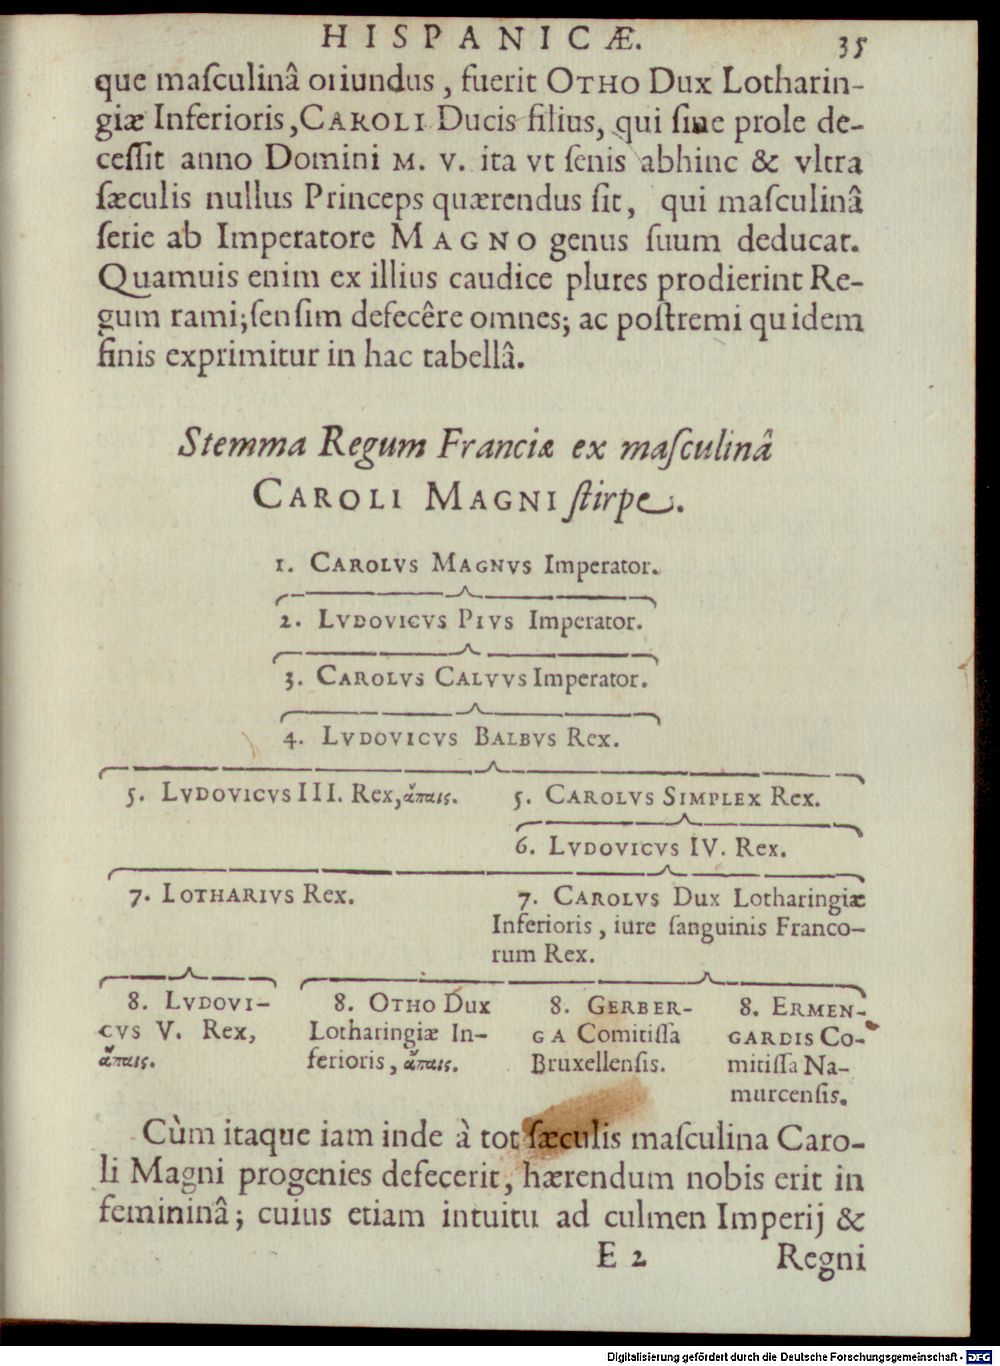 HISPANICÆ. 35
que maſculinâ oriundus, fuerit OTHO Dux Lotharin-
giæ Inferioris, CAROLI Ducis filius, qui ſine prole de-
ceſſit anno Domini M. V. ita vt ſenis abhinc & vltra
ſæculis nullus Princeps quærendus ſit, qui maſculinâ
ſerie ab Imperatore MAGNO genus ſuum deducat.
Quamuis enim ex illius caudice plures prodierint Re-
gum rami; ſenſim defecêre omnes; ac poſtremi quidem
finis exprimitur in hac tabellâ.
Stemma Regum Franciæ ex maſculinâ
CAROLI MAGNI ſtirpe.
1. CAROLVS MAGNVS Imperator.
2. LVDOVICVS PIVS Imperator.
3. CAROLVS CALVVS Imperator.
4. LVDOVICVS BALBVS Rex.
5. LVDOVICVS III. Rex, ἄπαις. 5. CAROLVS SIMPLEX Rex.
6. LVDOVICVS IV. Rex.
7. LOTHARIVS Rex. 7. CAROLVS Dux Lotharingiæ
Inferioris, iure ſanguinis Franco-
rum Rex.
8. LVDOVI- 8. OTHO Dux 8. GERBER- 8. ERMEN-
CVS V. Rex, Lotharingiæ In- GA Comitiſſa GARDIS Co-
ἄπαις. ferioris, ἄπαις. Bruxellenſis. mitiſſa Na-
murcenſis.
Cùm itaque iam inde à tot ſæculis maſculina Caro-
li Magni progenies defecerit, hærendum nobis erit in
femininâ; cuius etiam intuitu ad culmen Imperij &
E 2 Regni
Digitalisierung gefördert durch die Deutsche Forschungsgemeinschaft - DFG